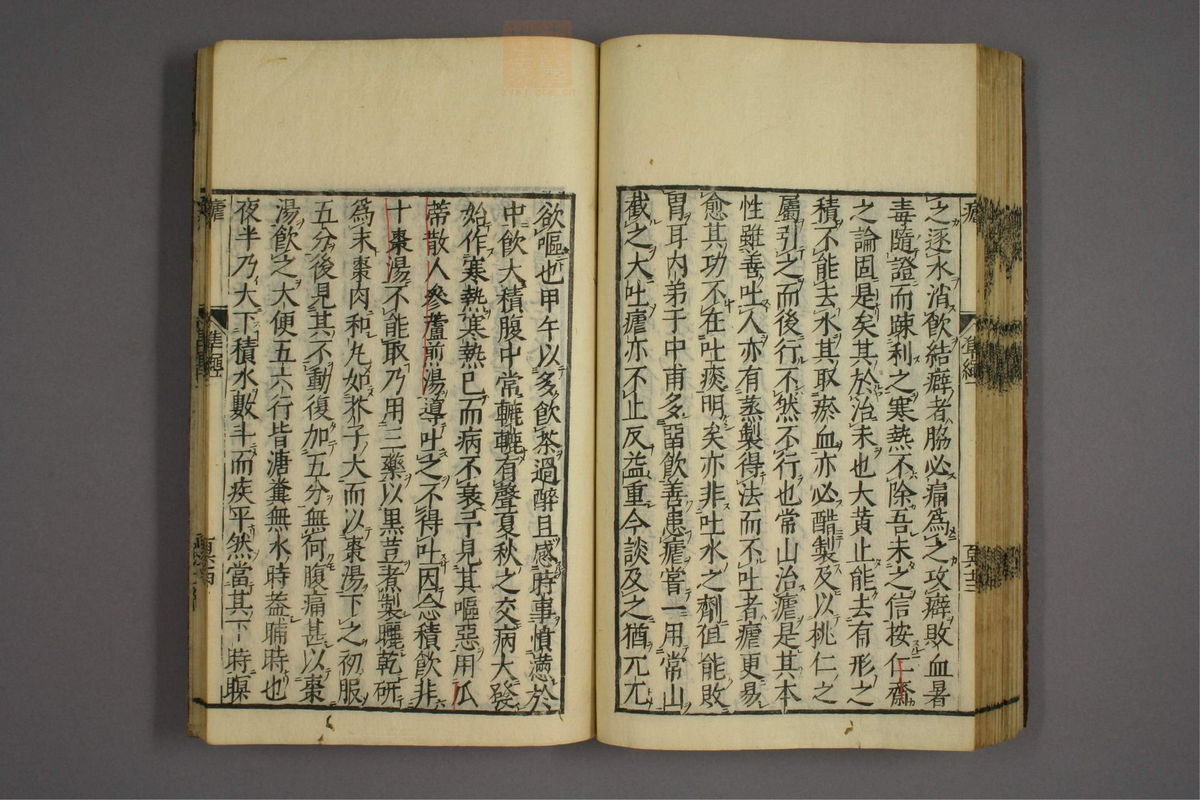 之逐水消飲結癖者脇必痛為之攻癖敗血暑
毒隨證而踈利之寒熱不除吾未之信按仁齋
之論固是矣其於治未也大黃止能去有形之
積不能去水其取瘀血亦必醋製及以桃仁之
屬引之而後行不然不行也常山治瘧是其本
性雖善吐人亦有蒸製得法而不吐者瘧更易
愈其功不在吐痰明矣亦非吐水之劑徂能敗
胃耳內弟于中甫多畱飲善患瘧嘗一用常山
截之大吐瘧亦不止反益重今談及之猶兀兀
欲嘔也甲午以多飲茶過醉且感時事憤懣於
中飲大積腹中常轆轆有聲夏秋之交病大發
始作寒熱寒熱已而病不衰予見其嘔惡用瓜
蒂散人參蘆煎湯導吐之不得吐因念積飲非
十棗湯不能取乃用三藥以黑荳煮製曬乾研
為末棗肉和丸如芥子大而以棗湯下之初服
五分後見其不動復加五分無何腹痛甚以棗
湯飲之大便五六行皆溏糞無水時葢晡時也
夜半乃大下積水數斗而疾平然當其下時瞑